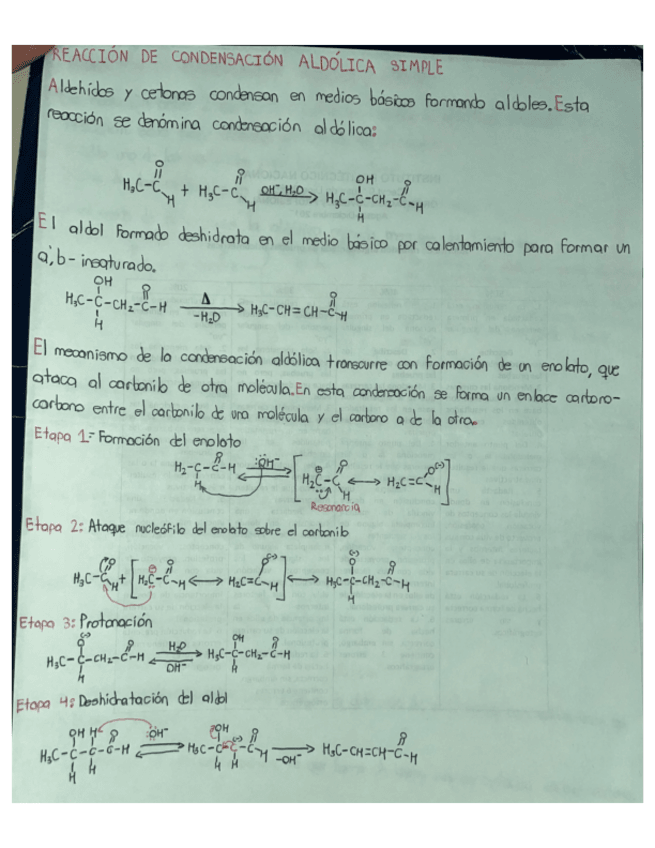 REACCIÓN DE CONDENSACIÓN ALDÓLICA SIMPLE
Aldehidos y cetonas condensan en medios básicos formando aldoles. Esta
reacción se denómina condensación aldólica:
H₃C-C(=O)-H + H₃C-C(=O)-H OH⁻, H₂O → H₃C-C(OH)(H)-CH₂-C(=O)-H
El aldol formado deshidrata en el medio básico por calentamiento para formar un
a,b-insaturado.
H₃C-C(OH)(H)-CH₂-C(=O)-H Δ -H₂O → H₃C-CH=CH-C(=O)-H
El mecanismo de la condensación aldólica transcurre con formación de un enolato, que
ataca al carbonilo de otra molécula. En esta condensación se forma un enlace carbono-
carbono entre el carbonilo de una molécula y el carbono a de la otra.
Etapa 1:- Formación del enolato
H₂-C(H)-C(=O)-H :ÖH⁻ ⇌ [H₂C-C(=O)-H ↔ H₂C=C(O(-))-H]
Resonancia
Etapa 2: Ataque nucleófilo del enolato sobre el carbonilo
H₃C-C(=O)-H + [H₂C-C(=O)-H ↔ H₂C=C(O(-))-H] ↔ H₃C-C(O(-))(H)-CH₂-C(=O)-H
Etapa 3: Protonación
H₃C-C(O(-))(H)-CH₂-C(=O)-H H₂O ⇌ OH⁻ H₃C-C(OH)(H)-CH₂-C(=O)-H
Etapa 4: Deshidratación del aldol
H₃C-C(OH)(H)-C(H)(H)-C(=O)-H :ÖH⁻ ⇌ H₃C-C(OH)(H)-C(-)(H)-C(=O)-H -OH⁻ → H₃C-CH=CH-C(=O)-H